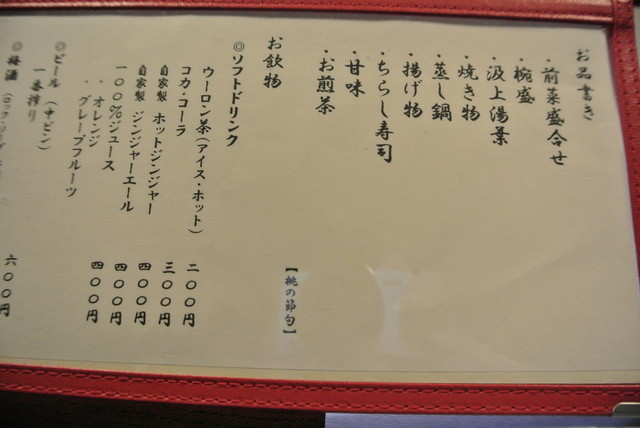 お品書き
・前菜盛合せ
・椀盛
・汲上湯葉
・焼き物
・蒸し鍋
・揚げ物
・ちらし寿司
・甘味
・お煎茶
【桃の節句】
お飲物
◎ソフトドリンク
ウーロン茶（アイス・ホット） 二〇〇円
コカ・コーラ 三〇〇円
自家製 ホットジンジャー 四〇〇円
自家製 ジンジャーエール 四〇〇円
一〇〇％ジュース 四〇〇円
・オレンジ
・グレープフルーツ
◎ビール（中ビン）
一番搾り
◎梅酒（ロック・ソーダ 六〇〇円